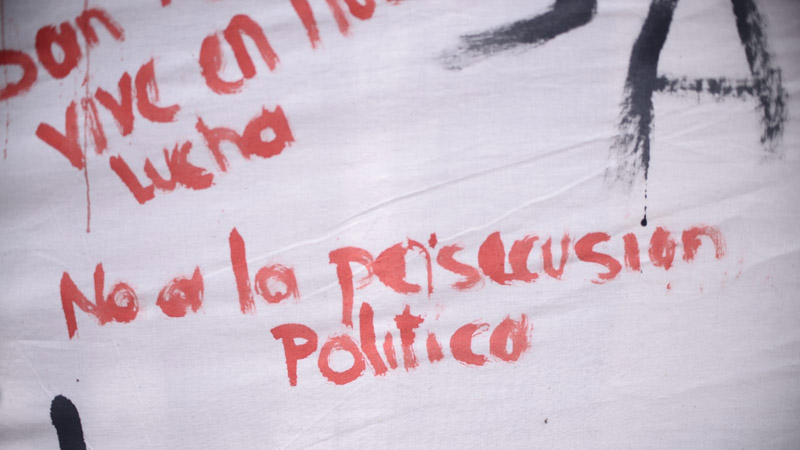 vive en
Lucha
A
No a la persecusion
Politica